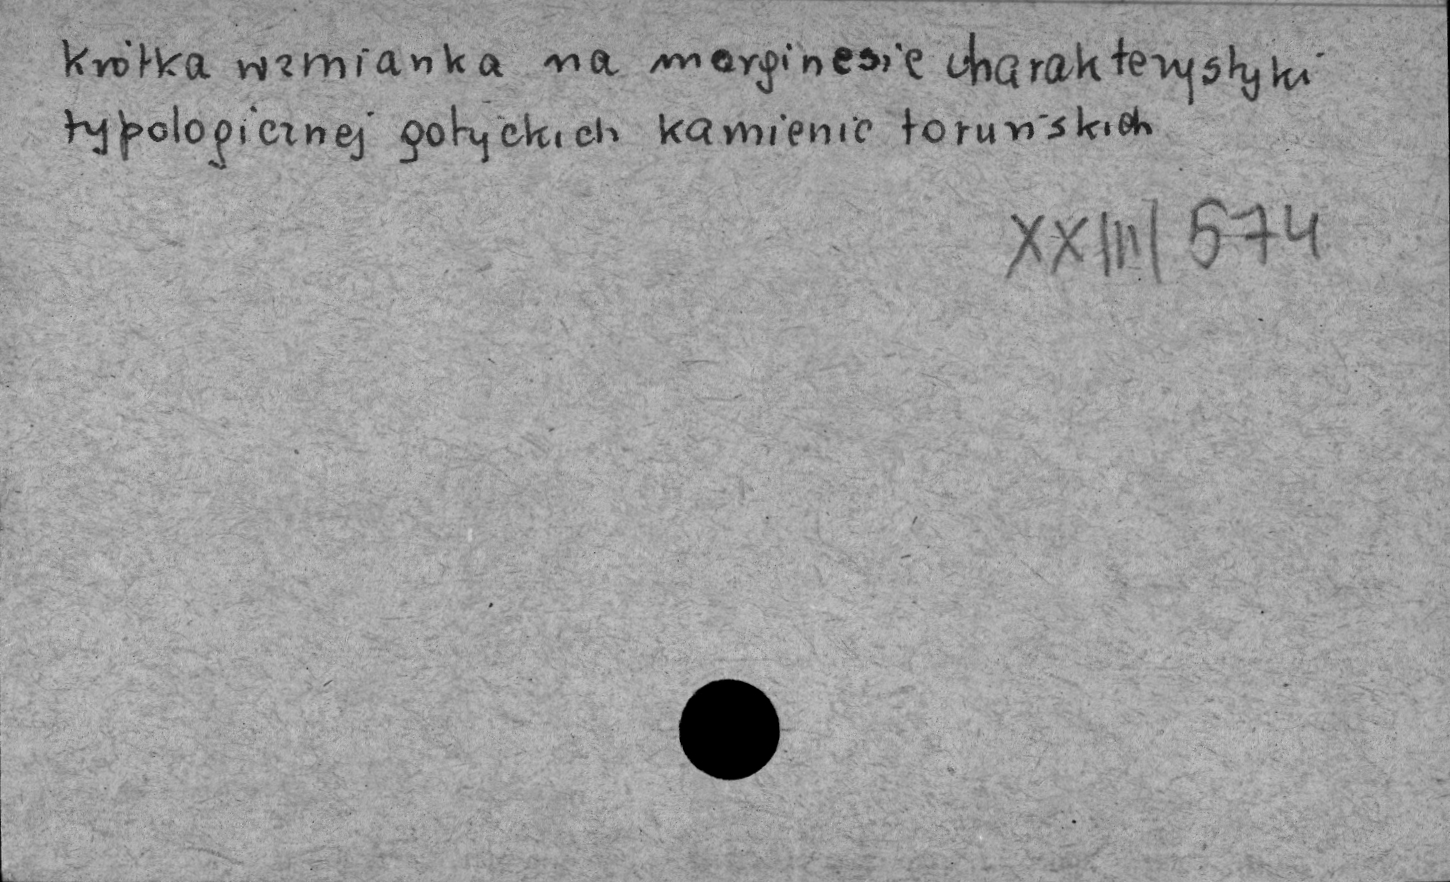 krótka wzmianka na marginesie charakterystyki
typologicznej gotyckich kamienic toruńskich
XXIII/574